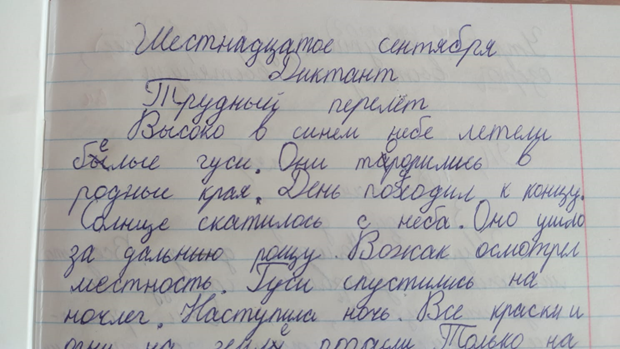 Шестнадцатое сентября
Диктант
Трудный перелёт
Высоко в синем небе летели
белые гуси. Они торопились в
родные края. День подходил к концу.
Солнце скатилось с неба. Оно ушло
за дальнюю рощу. Вожак осмотрел
местность. Гуси спустились на
ночлег. Наступила ночь. Все краски и
огни на земле погасли. Только на